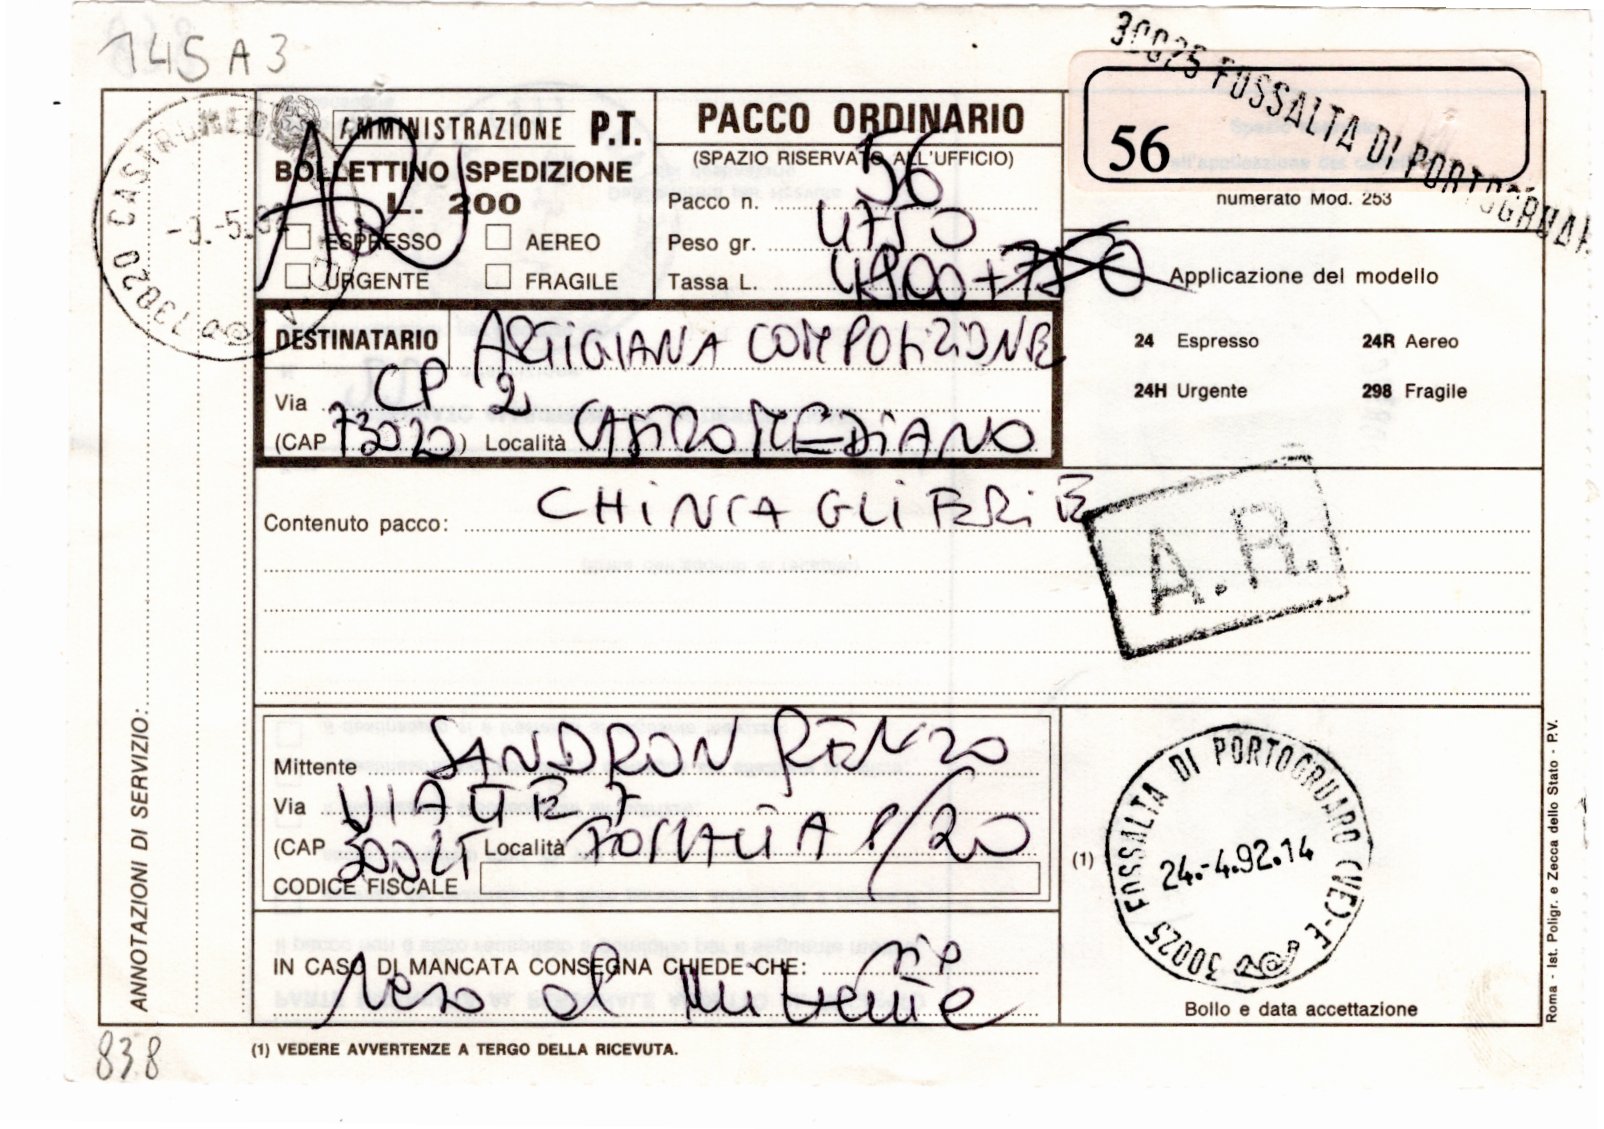 145 A 3
30025 FOSSALTA DI PORTOGRUAR
56
numerato Mod. 253
73020 CASTROMED
AMMINISTRAZIONE P.T.
BOLLETTINO SPEDIZIONE
L. 200
AR
ESPRESSO
AEREO
URGENTE
FRAGILE
PACCO ORDINARIO
(SPAZIO RISERVATO ALL'UFFICIO)
Pacco n. 56
Peso gr. 4750
Tassa L. 4800+750
Applicazione del modello
24 Espresso
24R Aereo
24H Urgente
298 Fragile
DESTINATARIO ARTIGIANA COMPOSIZIONE
Via CP 2
(CAP 73020) Località CASTROMEDIANO
Contenuto pacco: CHINCAGLIERIE
A.R.
Mittente SANDRON RENZO
Via
(CAP 30025 Località FOSSALTA
CODICE FISCALE
IN CASO DI MANCATA CONSEGNA CHIEDE CHE:
reso al mittente
(1)
30025 FOSSALTA DI PORTOGRUARO (VE)-E
24.-4.92.14
Bollo e data accettazione
ANNOTAZIONI DI SERVIZIO:
Roma - Ist. Poligr. e Zecca dello Stato - P.V.
838
(1) VEDERE AVVERTENZE A TERGO DELLA RICEVUTA.